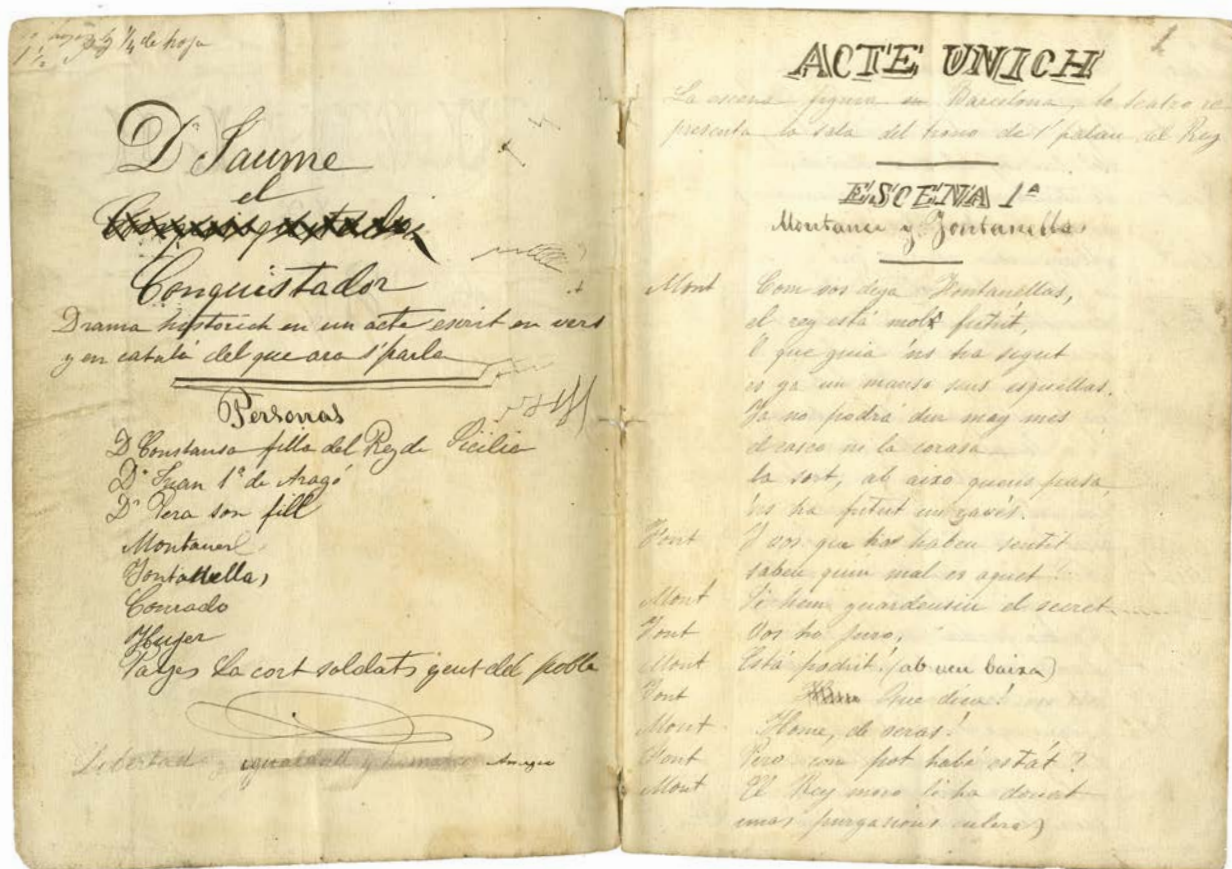 1/4 de hoja
Dn Jaume
el
Conquistador
Drama historich en un acte escrit en vers
y en catalá del que ara s'parla
Personas
D Constansa filla del Rey de Sicilia
Dn Juan 1º de Aragó
Dn Pera son fill
Montaner
Fontanella,
Conrado
Huger
Patges La cort soldats gent del poble
Libertad y igualdad y
1
ACTE UNICH
La escena figura en Barcelona, lo teatro re
presenta la sala del trono de l'palau del Rey
ESCENA 1ª
Montaner y Fontanellas
Mont Com vos deya Fontanellas,
el rey está molt futut,
é que guia 'ns ha sigut
es ya un manso sens esquellas.
Ja no podrá dur may mes
el casco ni la corasa
la sort, ab aixo quens pasa,
'ns ha futut un través.
Font Y vos que hos habeu sentit
sabeu quin mal es aquet?
Mont Si hem guardeusiu el secret......
Font Vos ho juro,
Mont Está podrit! (ab veu baixa)
Font Que dieu!
Mont Home, de veras!
Font Pero com pot habé estát?
Mont El Rey moro li ha donat
unas purgasions culeras